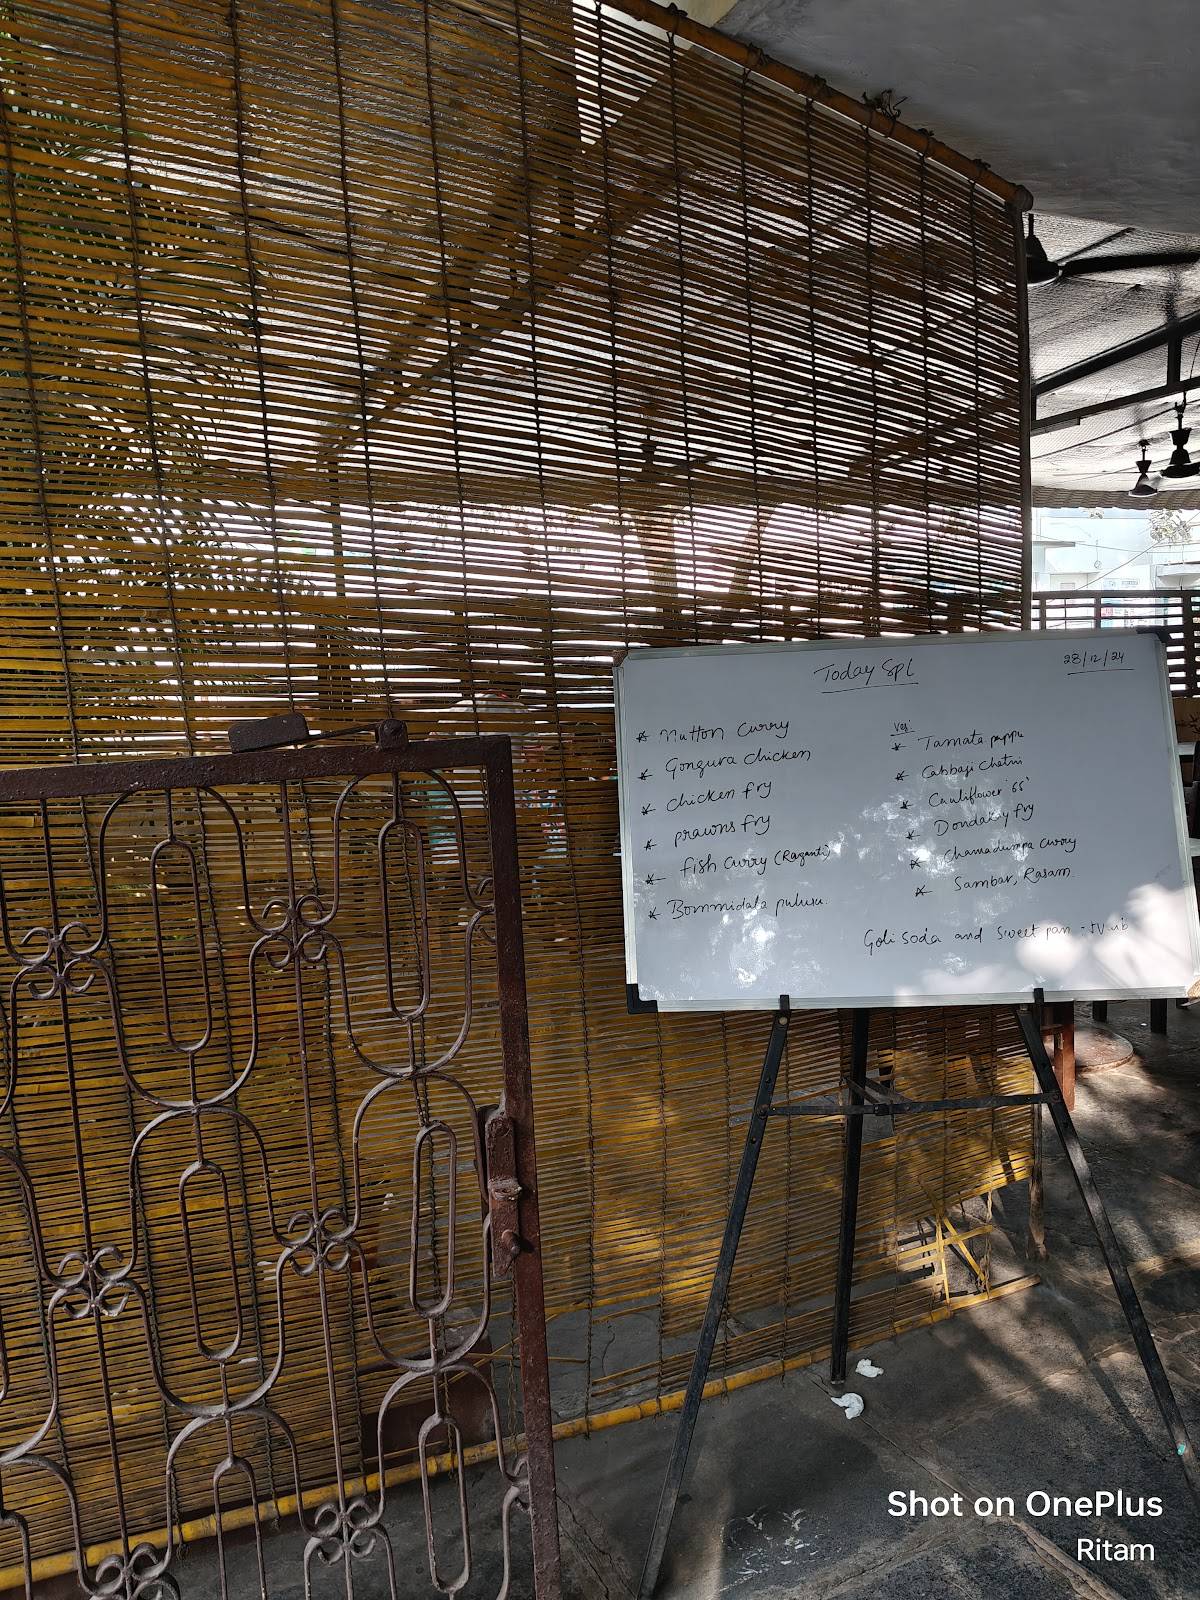 Today Spl
28/12/24
* Mutton Curry
* Gongura chicken
* Chicken fry
* prawns fry
* fish curry (Raganti)
* Bommidala pulusu.
Veg:
* Tamata pappu
* Cabbaji chetni
* Cauliflower '65'
* Dondakay fry
* Chamadumpa curry
* Sambar, Rasam.
Goli soda and Sweet pan -
Shot on OnePlus
Ritam